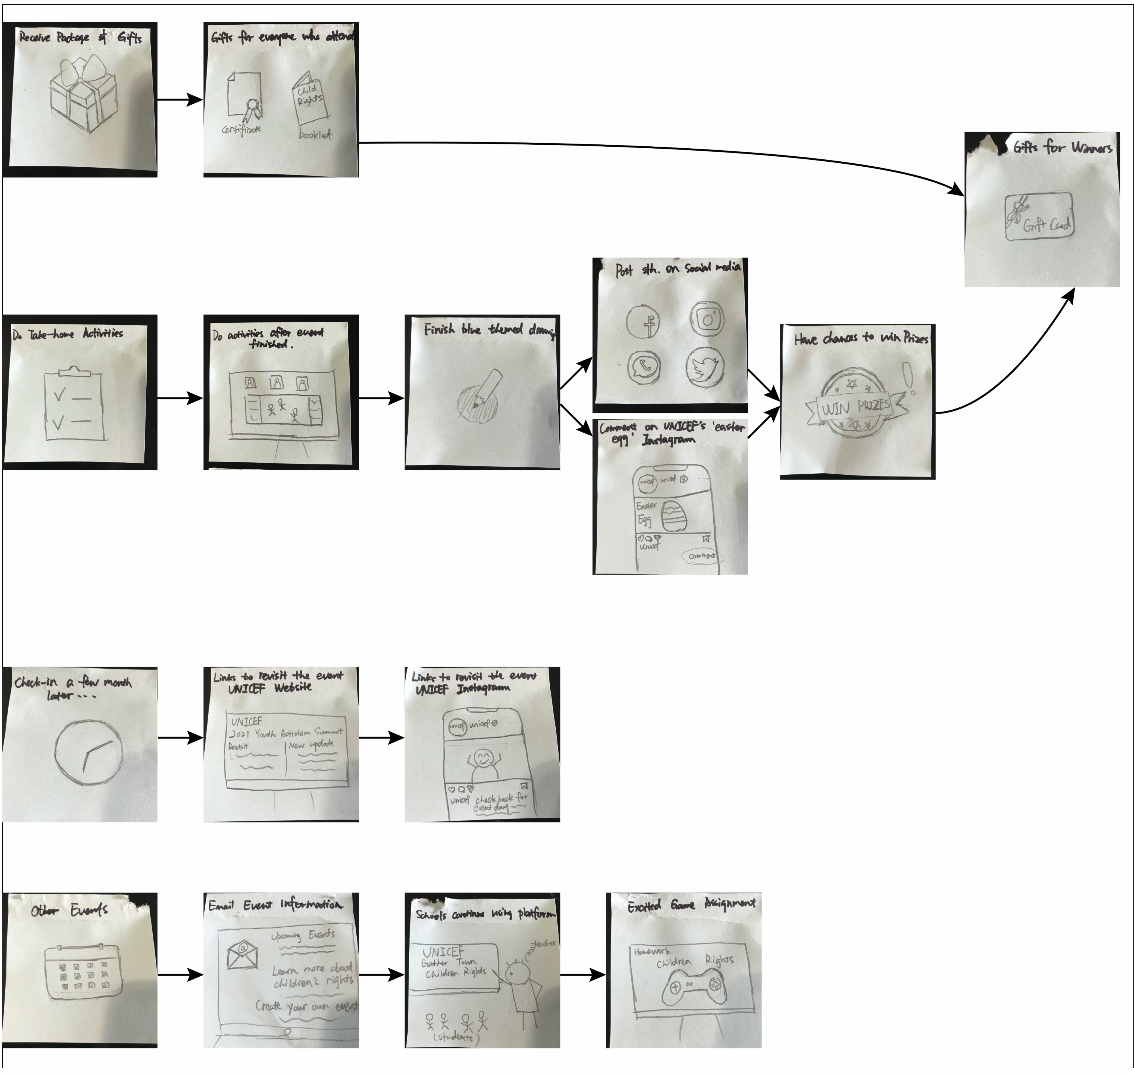 Receive Package of Gifts
Gifts for everyone who attend
Child
Rights
certificate
booklet
Gifts for Winners
Gift Card
Do Take-home Activities
Do activities after event
finished.
Finish blue themed drawing
Post sth. on Social media
Comment on UNICEF's 'easter
egg' Instagram
unicef unicef
Easter
Egg
unicef
Comment
Have chances to win Prizes
WIN PRIZES
Check-in a few month
later...
Links to revisit the event
UNICEF Website
UNICEF
2021 Youth Activism Summit
Revisit
New update
Links to revisit the event
UNICEF Instagram
unicef unicef
unicef check back for
event day
Other Events
Email Event Information
Upcoming Events
Learn more about
children's rights
Create your own event
Schools continue using platform
UNICEF
Gather Town
Children Rights
teacher
(students)
Excited Game Assignment
Homework
Children Rights